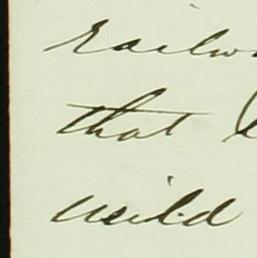 railw
that
wild